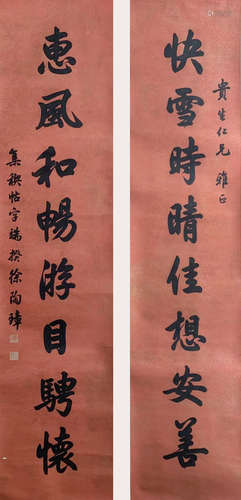 貴生仁兄雅正
快雪時晴佳想安善
惠風和暢游目騁懷
集稧帖字 揆徐陶璋